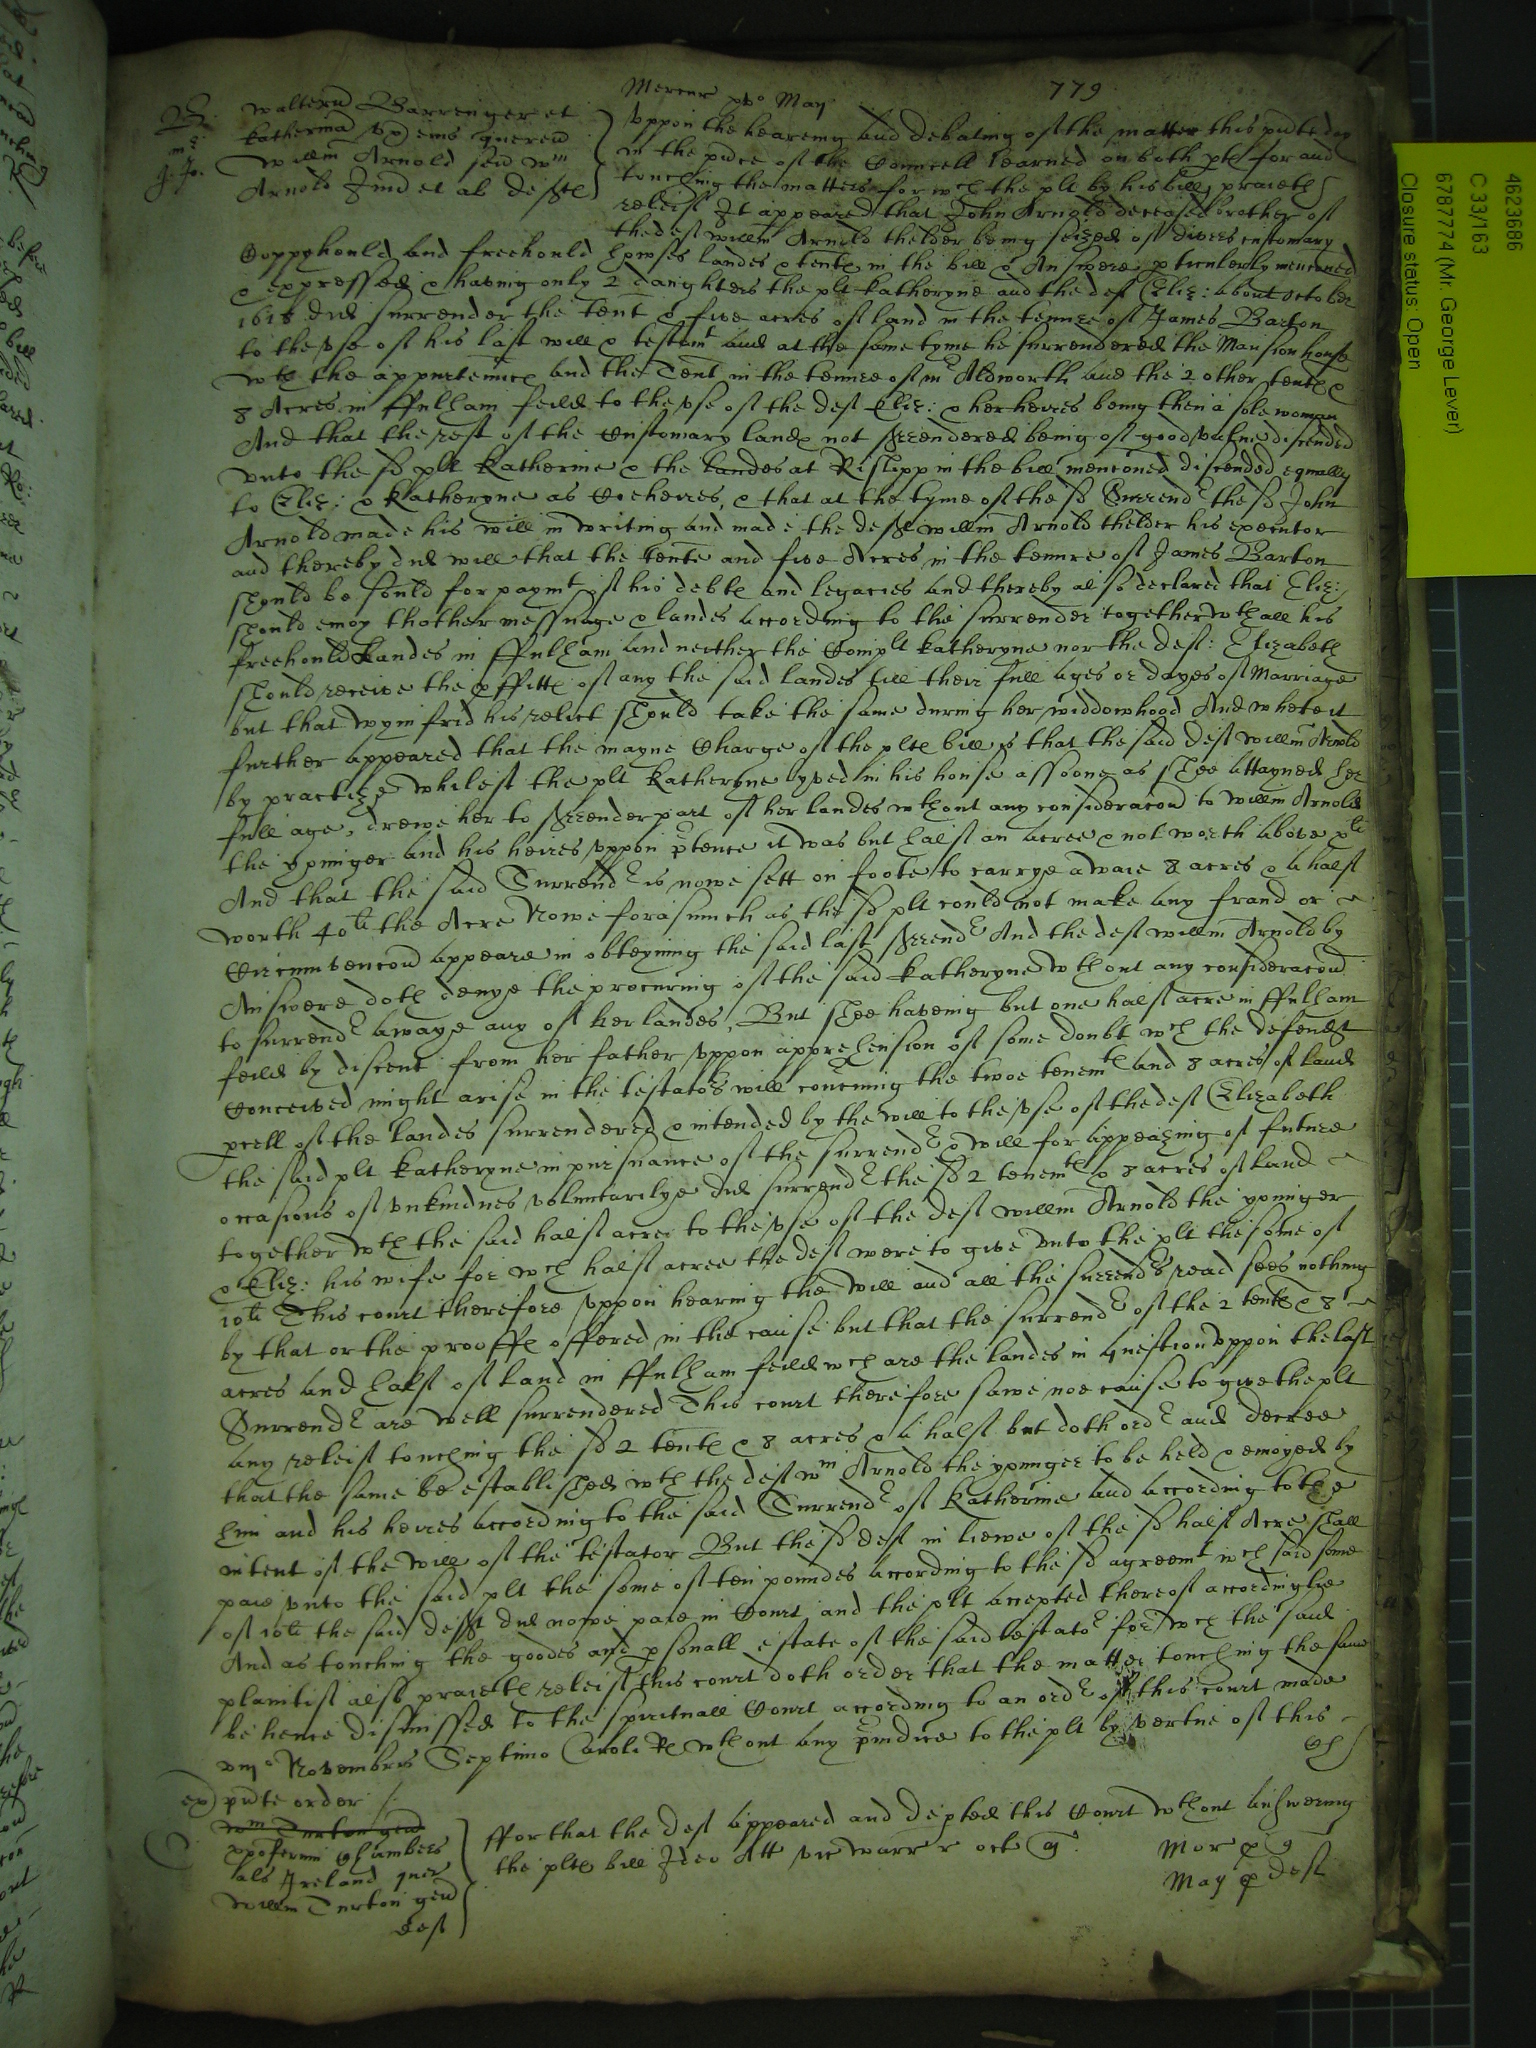 779
Mercur pro May
Walterus Barrenger et
Katherina vx eius querent
Willm Arnold sen Wm
Arnold Jun et al defts
Vppon the heareing and debating of the matter this pnte day
in the pnce of the Councell learned on both pts for and
touching the matters for wch the plt by his bill praieth
releif It appeared that John Arnold deceased brother of
the deft Willm Arnold thelder being seized of divers customary
Coppyhould and freehould howses landes & tents in the bill & Answere pticulerly mencioned
& expressed & having only 2 daughters the plt Katheryne and the def Eliz: about October
1618 did surrender the tent & five acres of land in the tenure of James Barton
to the vse of his last will & testamt and at the same tyme he surrendered the Mansion house
wth the appurtenncs and the Tent in the tenure of mr Aldworth and the 2 other tents &
8 Acres in ffulham feild to the vse of the deft Eliz: & her heires being then a sole woman
And that the rest of the Customary lands not surrendered being of good value discended
vnto the sd plt Katherine & the landes at Rislipp in the bill mencioned discended equally
to Eliz: & Katheryne as Coeheires, & that at the tyme of the sd Surrendr the sd John
Arnold made his will in writing and made the deft Willm Arnold thelder his executor
and thereby did will that the tente and five Acres in the tenure of James Barton
should be sould for paymt of his debts and legacies and thereby also declared that Eliz:
should enioy thother messuage & landes according to the surrender together wth all his
freehould Landes in ffulham and neither the Complt Katheryne nor the deft: Elizabeth
should receive the pffitts of any the said landes till their full ages or dayes of Marriage
but that Wynifrid his relict should take the same during her widdowhood And whereit
further appeared that the mayne Charge of the plts bill is that the said deft Willm Arnold
by practize whilest the plt Katheryne lyved in his house assoone as shee attayned her
full age, drewe her to surrender part of her landes wthout any consideracon to Willm Arnold
the younger and his heires vppon ptence it was but half an acre & not worth above xli
And that the said Surrendr is nowe sett on foote to carrye awaie 8 acres & a half
worth 40li the Acre Nowe forasmuch as the sd plt could not make any fraud or
Circumvencon appeare in obteyning the said last surrendr And the deft Willm Arnold by
Answere doth denye the procuring of the said Katheryne wthout any consideracon
to surrendr awaye any of her landes, But shee haveing but one half acre in ffulham
feild by discent from her father vppon apprehension of some doubt wch the defendt
Conceived might arise in the testators will concerning the twoe tenemts and 8 acres of land
pcell of the landes surrendered & intended by the will to the vse of the deft Elizabeth
the said plt Katheryne in pursuance of the surrendr & will for appeazing of future
occasions of vnkindnes voluntarilye did surrendr the sd 2 tenemts & 8 acres of land
together wth the said half acre to the vse of the deft Willm Arnold the younger
& Eliz: his wife for wch half acree the deft were to give vnto the plt the some of
10li This court therefore vppon hearing the will and all the surrendrs read sees nothing
by that or the prooffs offered in the cause but that the surrendr of the 2 tents & 8
acres and half of land in ffulham feild wch are the landes in question vppon the last
Surrendr are well surrendered This court therefore sawe noe cause to give the plt
any releif touching the sd 2 tents & 8 acres & a half but doth ordr and decree
that the same be established wth the deft Wm Arnold the younger to be held & enioyed by
him and his heires according to the said Surrendr of Katherine and according to the
intent of the will of the testator But the sd deft in liewe of the sd half Acre shall
paie vnto the said plt the some of ten poundes according to the sd agreemt wch said some
of 10li the said deft did nowe paie in Court and the plt accepted thereof accordinglye
And as touching the goodes and psonall estate of the said testator for wch the said
plaintif also praieth releif this court doth order that the matter touching the same
be hence dismissed to the spirituall Court according to an ordr of this court made
viijo Novembris Septimo Caroli R wthout any preiudice to the plt by vertue of this
pnte order
Wm Turton gen
Xpoferum Chambers
als Ireland quer
Willm Turton gen
deft
fforthat the deft appeared and depted this Court wthout answering
the plts bill Ideo Att vic warr r oct
Mor p q
May p deft
4623686
C 33/163
6787774 (Mr. George Lever)
Closure status: Open